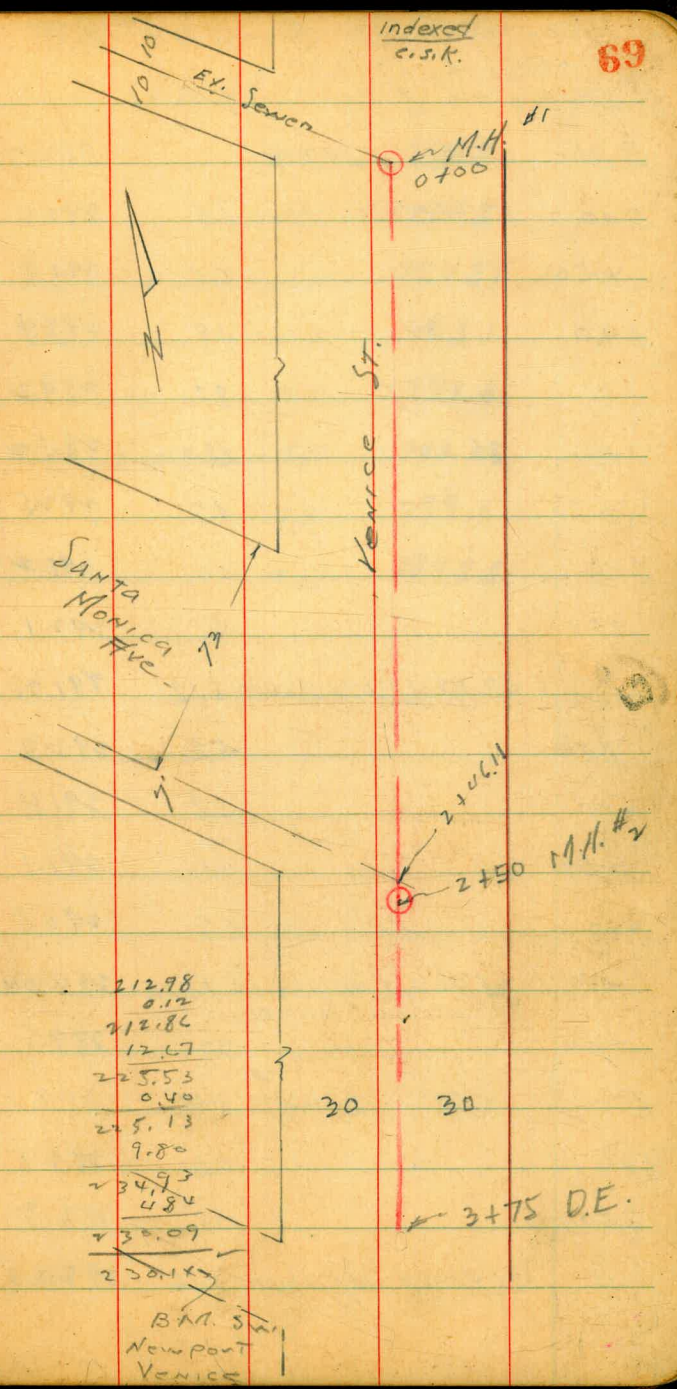 Indexed
c.s.k.
69
10
10
Ex. Sewer
M.H. #1
0+00
N
Venice St.
Santa
Monica
Ave.
73
7.
2+46.11
2+50 M.H. #2
212.98
0.12
212.86
12.67
225.53
0.40
225.13
9.80
234.93
4.84
230.09
30
30
3+75 D.E.
B.M. S.W.
Newport
Venice